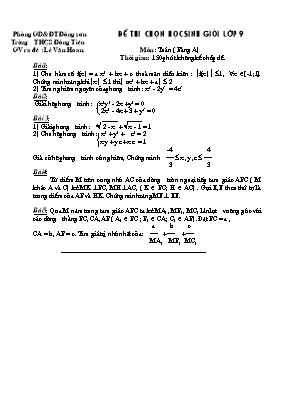 Phòng GD&ĐT Đông sơn
Trường THCS Đông Tiến
GV ra đề : Lê Văn Hoan
ĐỀ THI CHỌN HỌC SINH GIỎI LỚP 9
Môn: Toán (Bảng A)
Thời gian: 150 phút không kể chép đề.
Bài 1:
1) Cho hàm số f(x) = a x² + bx + c thoả mãn điều kiện : |f(x)| ≤ 1, ∀x ∈ [-1;1].
Chứng minh rằng khi |x| ≤ 1 thì | cx² + bx + a| ≤ 2
2) Tìm nghiệm nguyên của phương trình: x² - 2y² = 4c²
Bài 2:
Giải hệ phương trình:
x²y² - 2x + y² = 0
2x² - 4x + 3 + y³ = 0
Bài 3:
1) Giải phương trình:
2) Cho hệ phương trình: x² + y² + z² = 2
xy + yz + xz = 1
Giả sử hệ phương trình có nghiệm, Chứng minh -4/3 ≤ x, y, z ≤ 4/3
Bài 4:
Từ điểm M trên cung nhỏ AC của đường tròn ngoại tiếp tam giác ABC ( M
khác A và C) kẻ MK ⊥ BC, MH ⊥ AC, ( K ∈ BC, H ∈ AC) . Gọi E, F theo thứ tự là
trung điểm của AB và HK. Chứng minh rằng MF ⊥ EF.
Bài 5: Qua M nằm trong tam giác ABC ta kẻ MA₁, MB₁, MC₁ lần lượt vuông góc với
các đường thẳng BC, CA, AB ( A₁ ∈ BC ; B₁ ∈ CA; C₁ ∈ AB). Đặt BC = a ,
CA = b, AB = c. Tìm giá trị nhỏ nhất của: a/MA₁ + b/MB₁ + c/MC₁